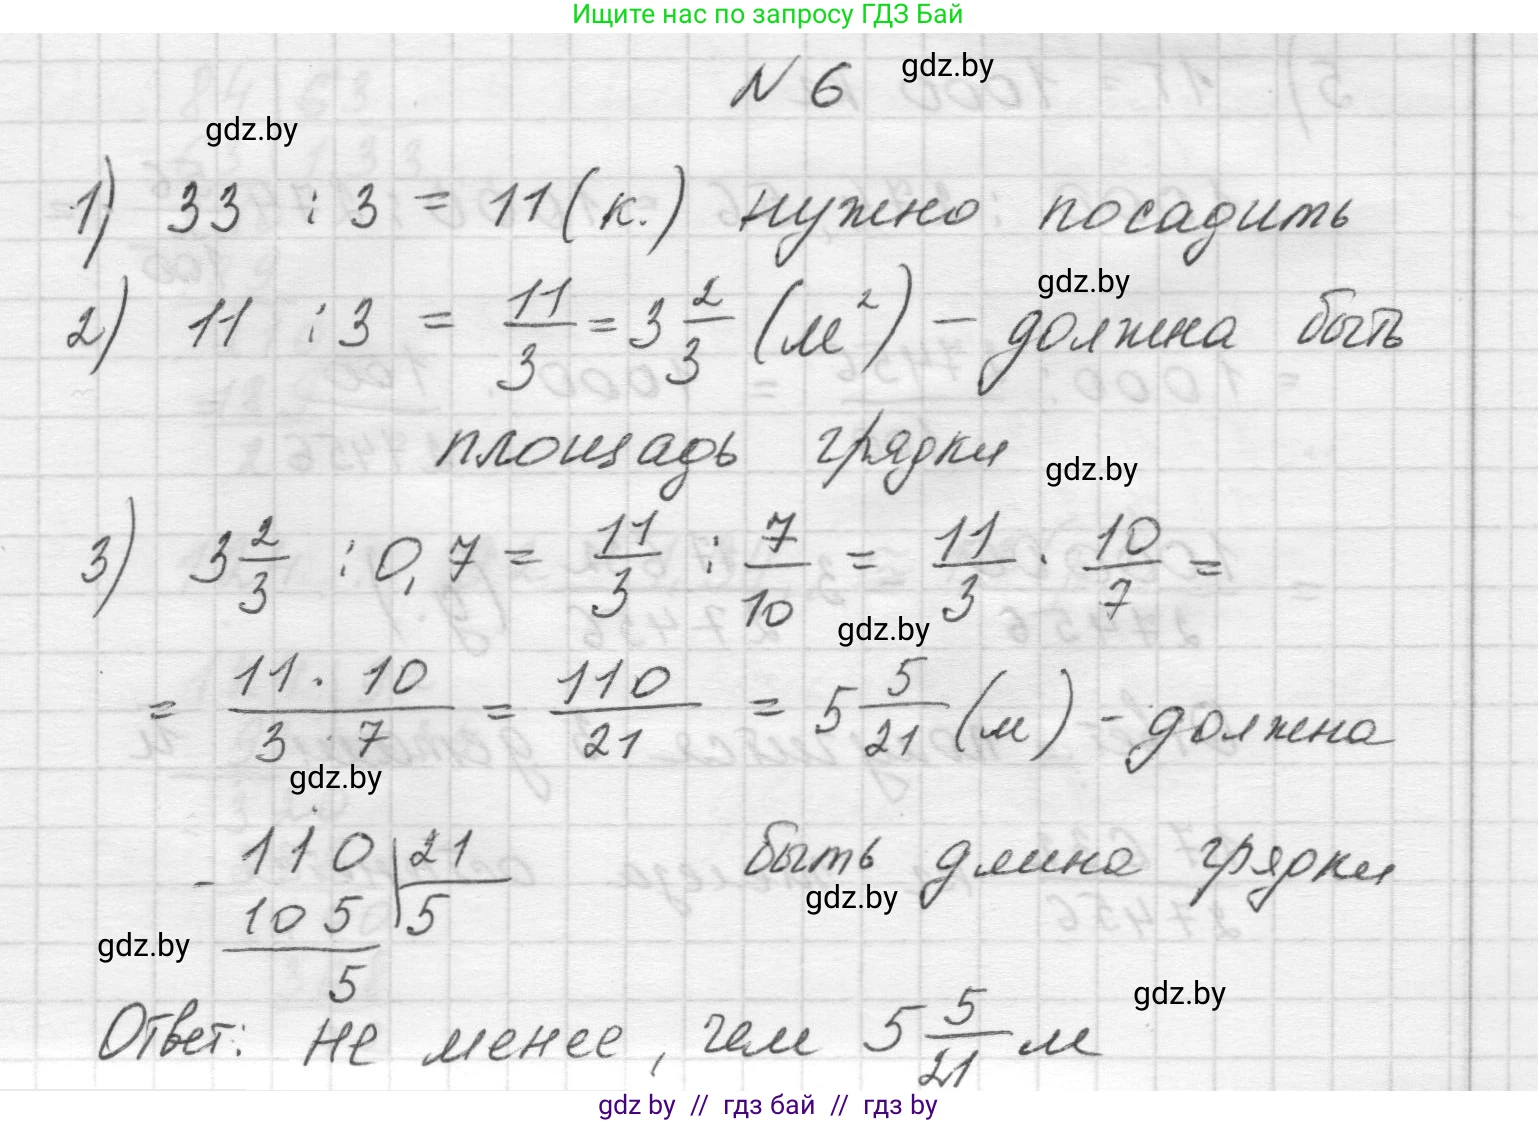 Ищите нас по запросу ГДЗ Бай
N 6
gdz.by
gdz.by
1) 33 : 3 = 11 (к.) нужно посадить
gdz.by
2) 11 : 3 = 11/3 = 3 2/3 (м²) - должна быть
площадь грядки
gdz.by
3) 3 2/3 : 0,7 = 11/3 : 7/10 = 11/3 · 10/7 =
gdz.by
= 11 · 10 / 3 · 7 = 110/21 = 5 5/21 (м) - должна
gdz.by
быть длина грядки
- 110 | 21
105 | 5
5
gdz.by
gdz.by
gdz.by
Ответ: не менее, чем 5 5/21 м
gdz by // гдз бай // гдз by